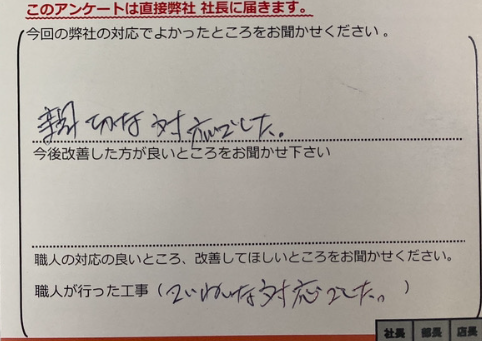 このアンケートは直接弊社 社長に届きます。
今回の弊社の対応でよかったところをお聞かせください。
親切な対応でした。
今後改善した方が良いところをお聞かせ下さい
職人の対応の良いところ、改善してほしいところをお聞かせください。
職人が行った工事（ていねいな対応でした。）
社長 部長 店長